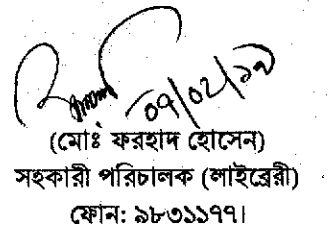 ০৭/০২/১৯
(মোঃ ফরহাদ হোসেন)
সহকারী পরিচালক (লাইব্রেরী)
ফোন: ৯৮৩১১৭৭।